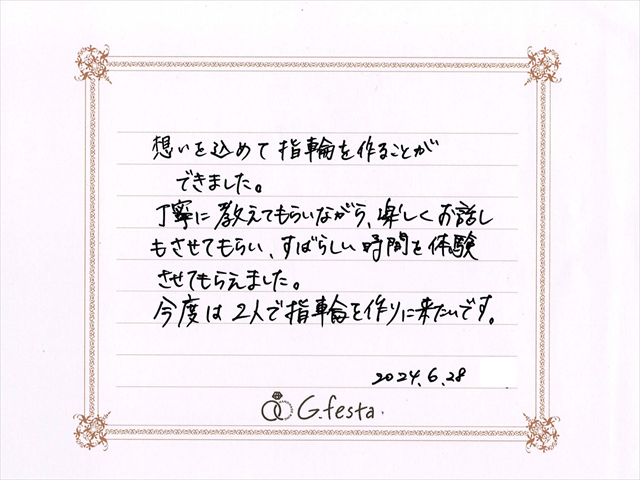 想いを込めて指輪を作ることが
できました。
丁寧に教えてもらいながら、楽しくお話し
もさせてもらい、すばらしい時間を体験
させてもらえました。
今度は2人で指輪を作りに来たいです。
2024.6.28
G.festa.